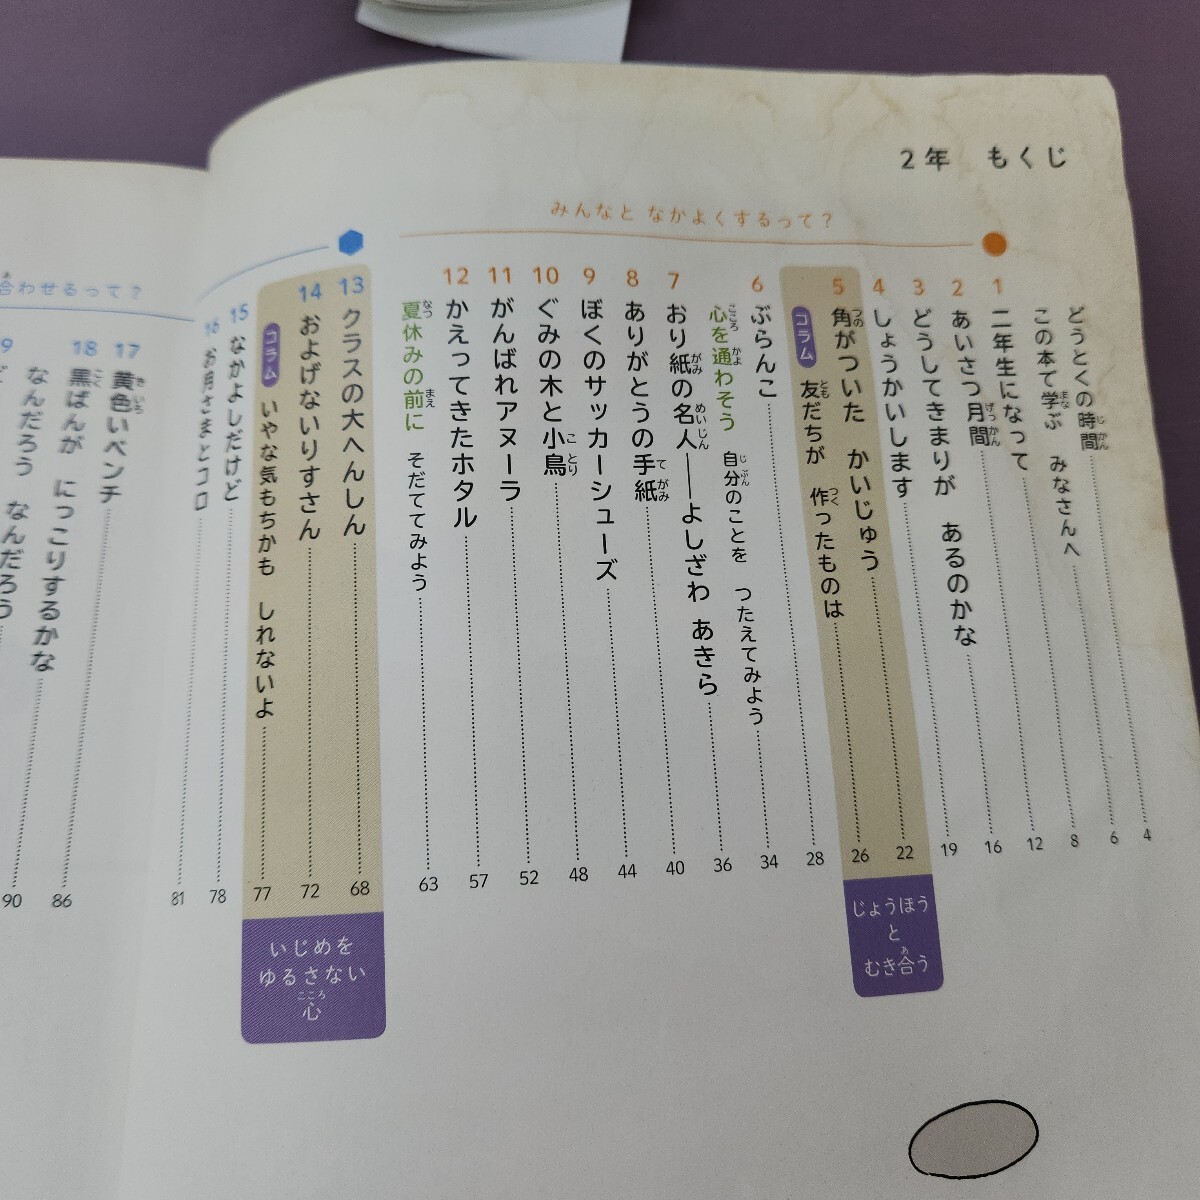 2年 もくじ
どうとくの時間 4
この本で学ぶ みなさんへ 6
みんなと なかよくするって？
1 二年生になって 8
2 あいさつ月間 12
3 どうしてきまりが あるのかな 16
4 しょうかいします 19
5 角がついた かいじゅう 22
コラム 友だちが 作ったものは 26
じょうほう
と
むき合う
6 ぶらんこ 28
心を通わそう 自分のことを つたえてみよう 34
7 おり紙の名人――よしざわ あきら 36
8 ありがとうの手紙 40
9 ぼくのサッカーシューズ 44
10 ぐみの木と小鳥 48
11 がんばれアヌーラ 52
12 かえってきたホタル 57
夏休みの前に そだててみよう 63
合わせるって？
13 クラスの大へんしん 68
14 およげないりすさん 72
コラム いやな気もちかも しれないよ 77
いじめを
ゆるさない
心
15 なかよしだけど 78
16 お月さまとコロ 81
17 黄色いベンチ 86
18 黒ばんが にっこりするかな 90
なんだろう なんだろう
9 ど